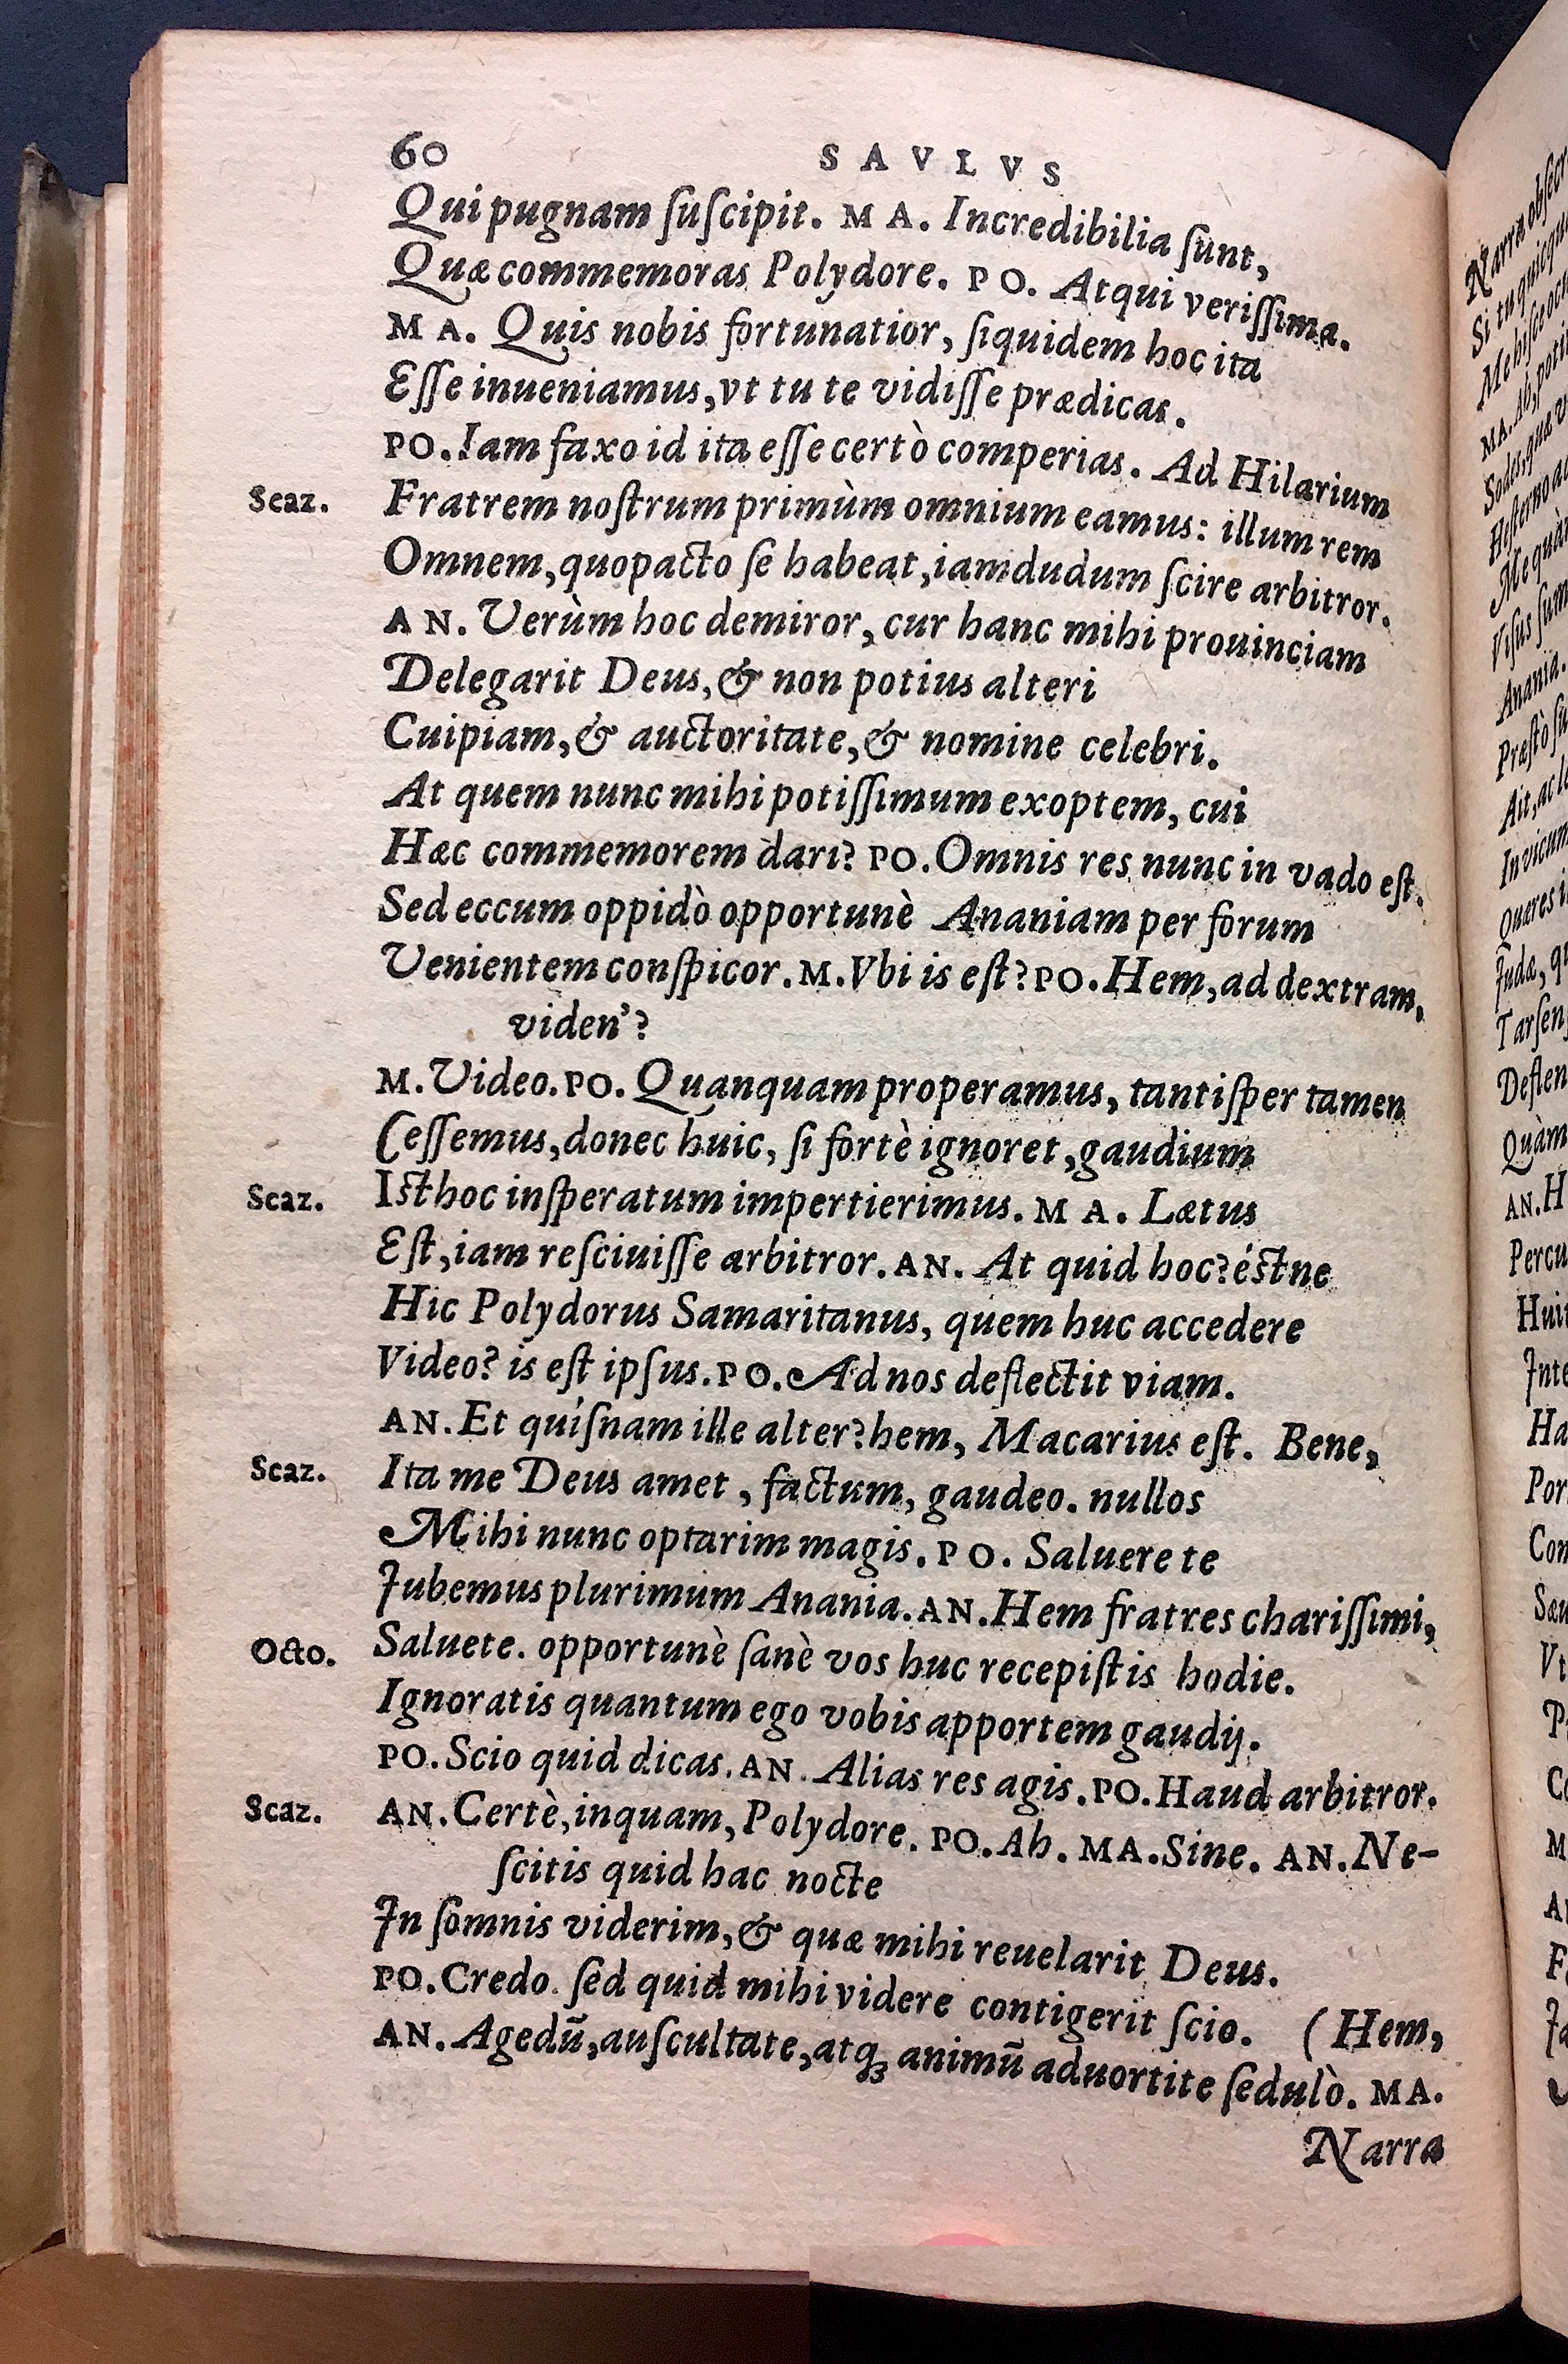 60 SAVLVS
Qui pugnam ſuſcipit. MA. Incredibilia ſunt,
Quæ commemoras Polydore. PO. Atqui veriſſima.
MA. Quis nobis fortunatior, ſiquidem hoc ita
Eſſe inueniamus, vt tu te vidiſſe prædicas.
PO. Iam faxo id ita eſſe certò comperias. Ad Hilarium
Scaz. Fratrem noſtrum primùm omnium eamus: illum rem
Omnem, quo pacto ſe habeat, iamdudum ſcire arbitror.
AN. Verùm hoc demiror, cur hanc mihi prouinciam
Delegarit Deus, & non potius alteri
Cuipiam, & auctoritate, & nomine celebri.
At quem nunc mihi potiſſimum exoptem, cui
Hæc commemorem dari? PO. Omnis res nunc in vado eſt.
Sed eccum oppidò opportunè Ananiam per forum
Venientem conſpicor. M. Vbi is eſt? PO. Hem, ad dextram,
viden'?
M. Video. PO. Quanquam properamus, tantiſper tamen
Ceſſemus, donec huic, ſi fortè ignoret, gaudium
Scaz. Iſthoc inſperatum impertierimus. MA. Lætus
Eſt, iam reſciuiſſe arbitror. AN. At quid hoc? éſtne
Hic Polydorus Samaritanus, quem huc accedere
Video? is eſt ipſus. PO. Ad nos deflectit viam.
AN. Et quíſnam ille alter? hem, Macarius eſt. Bene,
Scaz. Ita me Deus amet, factum, gaudeo. nullos
Mihi nunc optarim magis. PO. Saluere te
Iubemus plurimùm Anania. AN. Hem fratres chariſſimi,
Octo. Saluete. opportunè ſanè vos huc recepiſtis hodie.
Ignoratis quantum ego vobis apportem gaudij.
PO. Scio quid dicas. AN. Alias res agis. PO. Haud arbitror.
Scaz. AN. Certè, inquam, Polydore. PO. Ah. MA. Sine. AN. Ne-
ſcitis quid hac nocte
In ſomnis viderim, & quæ mihi reuelarit Deus.
PO. Credo. ſed quid mihi videre contigerit ſcio. (Hem,
AN. Agedũ, auſcultate, atqꝫ animũ aduortite ſedulò. MA.
Narra